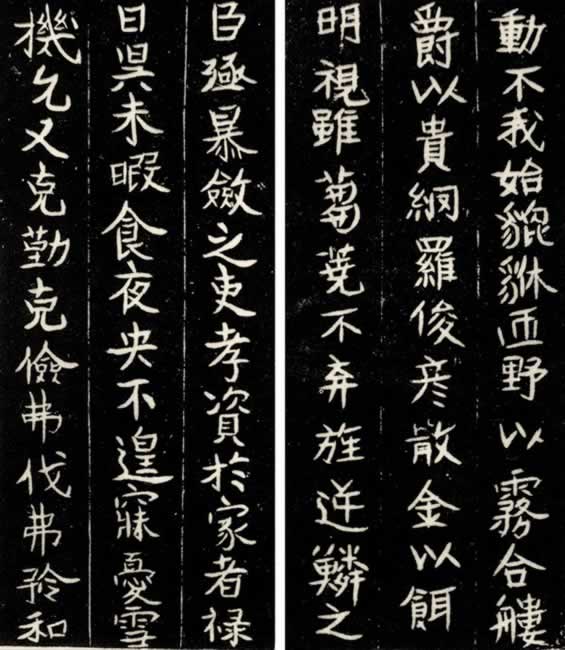 動不我始貔貅匝野以霧合艛
爵以貴網羅俊彦散金以餌
明視雖蒭蕘不弃旌逆鱗之
臣殛暴斂之吏孝資於家者禄
日吳未暇食夜央不遑寐憂雪
機又克勤克儉弗伐弗矜和